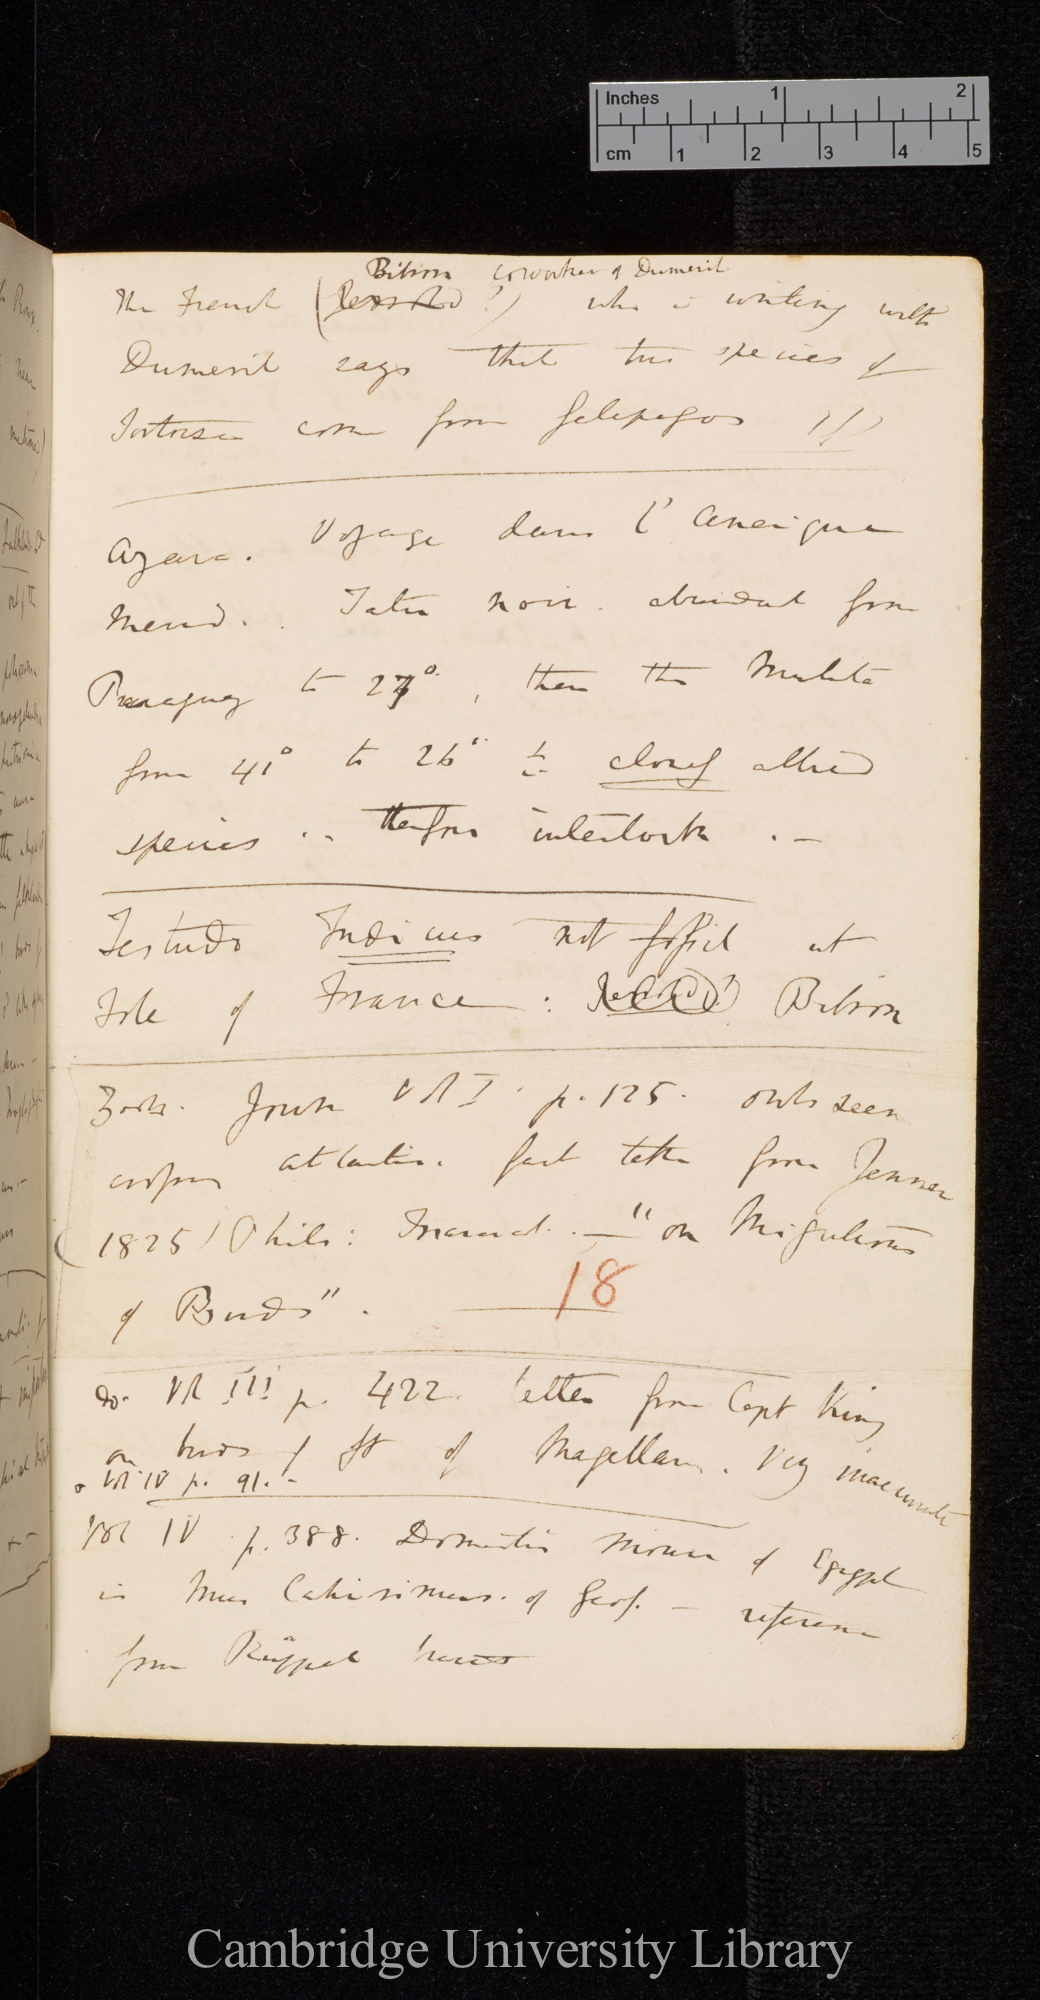 Inches 1 2
cm 1 2 3 4 5
Bibron coworker of Dumeril
The French ( ?) who is writing with
Dumeril says that two species of
Tortoise come from Galapagos !!!
Azara. Voyage dans l'Amerique
Merid.. Tatu noir. abundant from
Paraguay to 27°, then the Mulita
from 41° to 26° closely allied
species .. therefore interlock . —
Testudo Indicus not fossil at
Isle of France: Bibron
Zool. Journ Vol I. p. 125. owls seen
across Atlantic. fact taken from Jenner
1825) Philo: Transact. — "on Migrations
of Birds".
18
do. Vol III p. 422. letter from Capt King
on birds of St of Magellan. Very inaccurate
Vol IV p. 91. -
Vol IV p. 388. Domestic mouse of Egypt
is Mus Cahirinus. of Geof. — reference
from Rüppel
Cambridge University Library